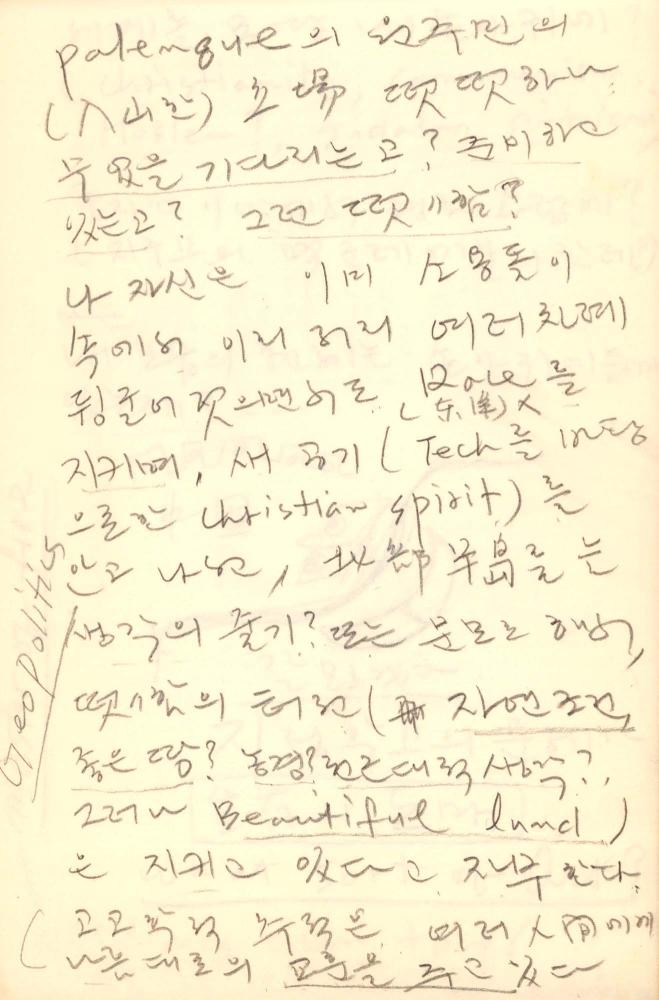 palenque의 원주민의
(入山한) 立場 떳떳하나
무엇을 기다리는고? 준비하고
있는고? 그런 떳〃함?
나 자신은 이미 소용돌이
속에서 이리저리 여러차례
뒹굴어 졌으면서도, Role를
(东洋)人
지키며, 새 공기 (Tech를 바탕
으로한 Christian spirit)를
안고 나서, 北部半島를 는
생각의 줄기? 또는 분모로 해서,
떳〃함의 터전( 자연조건,
좋은땅? 농경? 현대적 생각?,
그러나 Beautiful land)
은 지키고 있다고 자부한다.
(고고학적 추적은 여러 人間에게
나름대로의 교훈을 주고 있다
Geopolitics